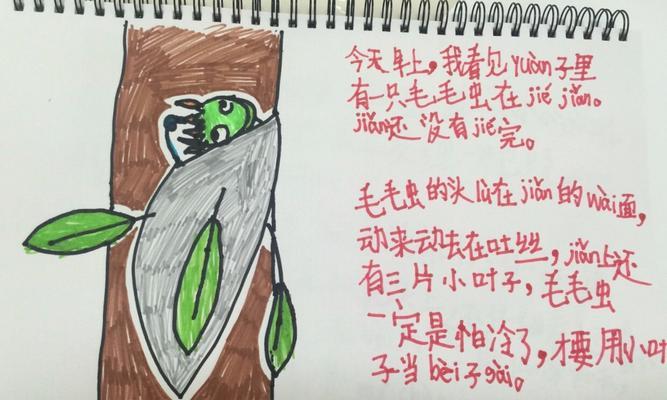 今天早上，我看见yuàn子里
有一只毛毛虫在jié jiǎn。
jiǎn还没有jié完。
毛毛虫的头lù在jiǎn的wài面，
动来动去在吐丝，jiǎn上还
有三片小叶子，毛毛虫
一定是怕冷了，才要用小叶
子当bèi子gài。